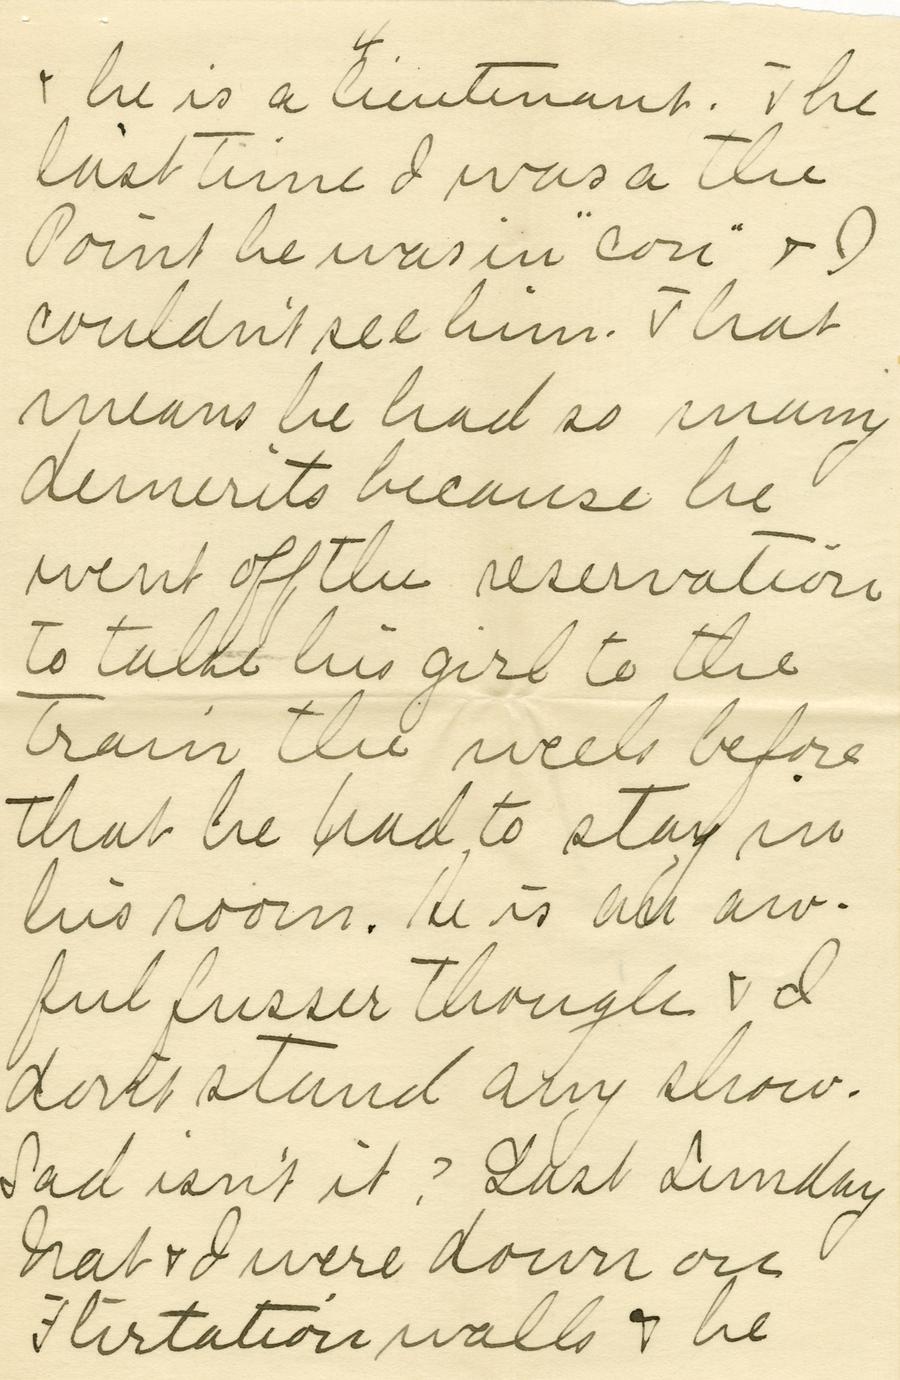 4
& he is a lieutenant. The
last time I was a the
Point he was in "con" & I
couldn't see him. That
means he had so many
demerits because he
went off the reservation
to take his girl to the
train the week before
that he had to stay in
his room. He is an aw-
ful fusser though & I
don't stand any show.
Sad isn't it? Last Sunday
Nat & I were down on
Flirtation walk & he